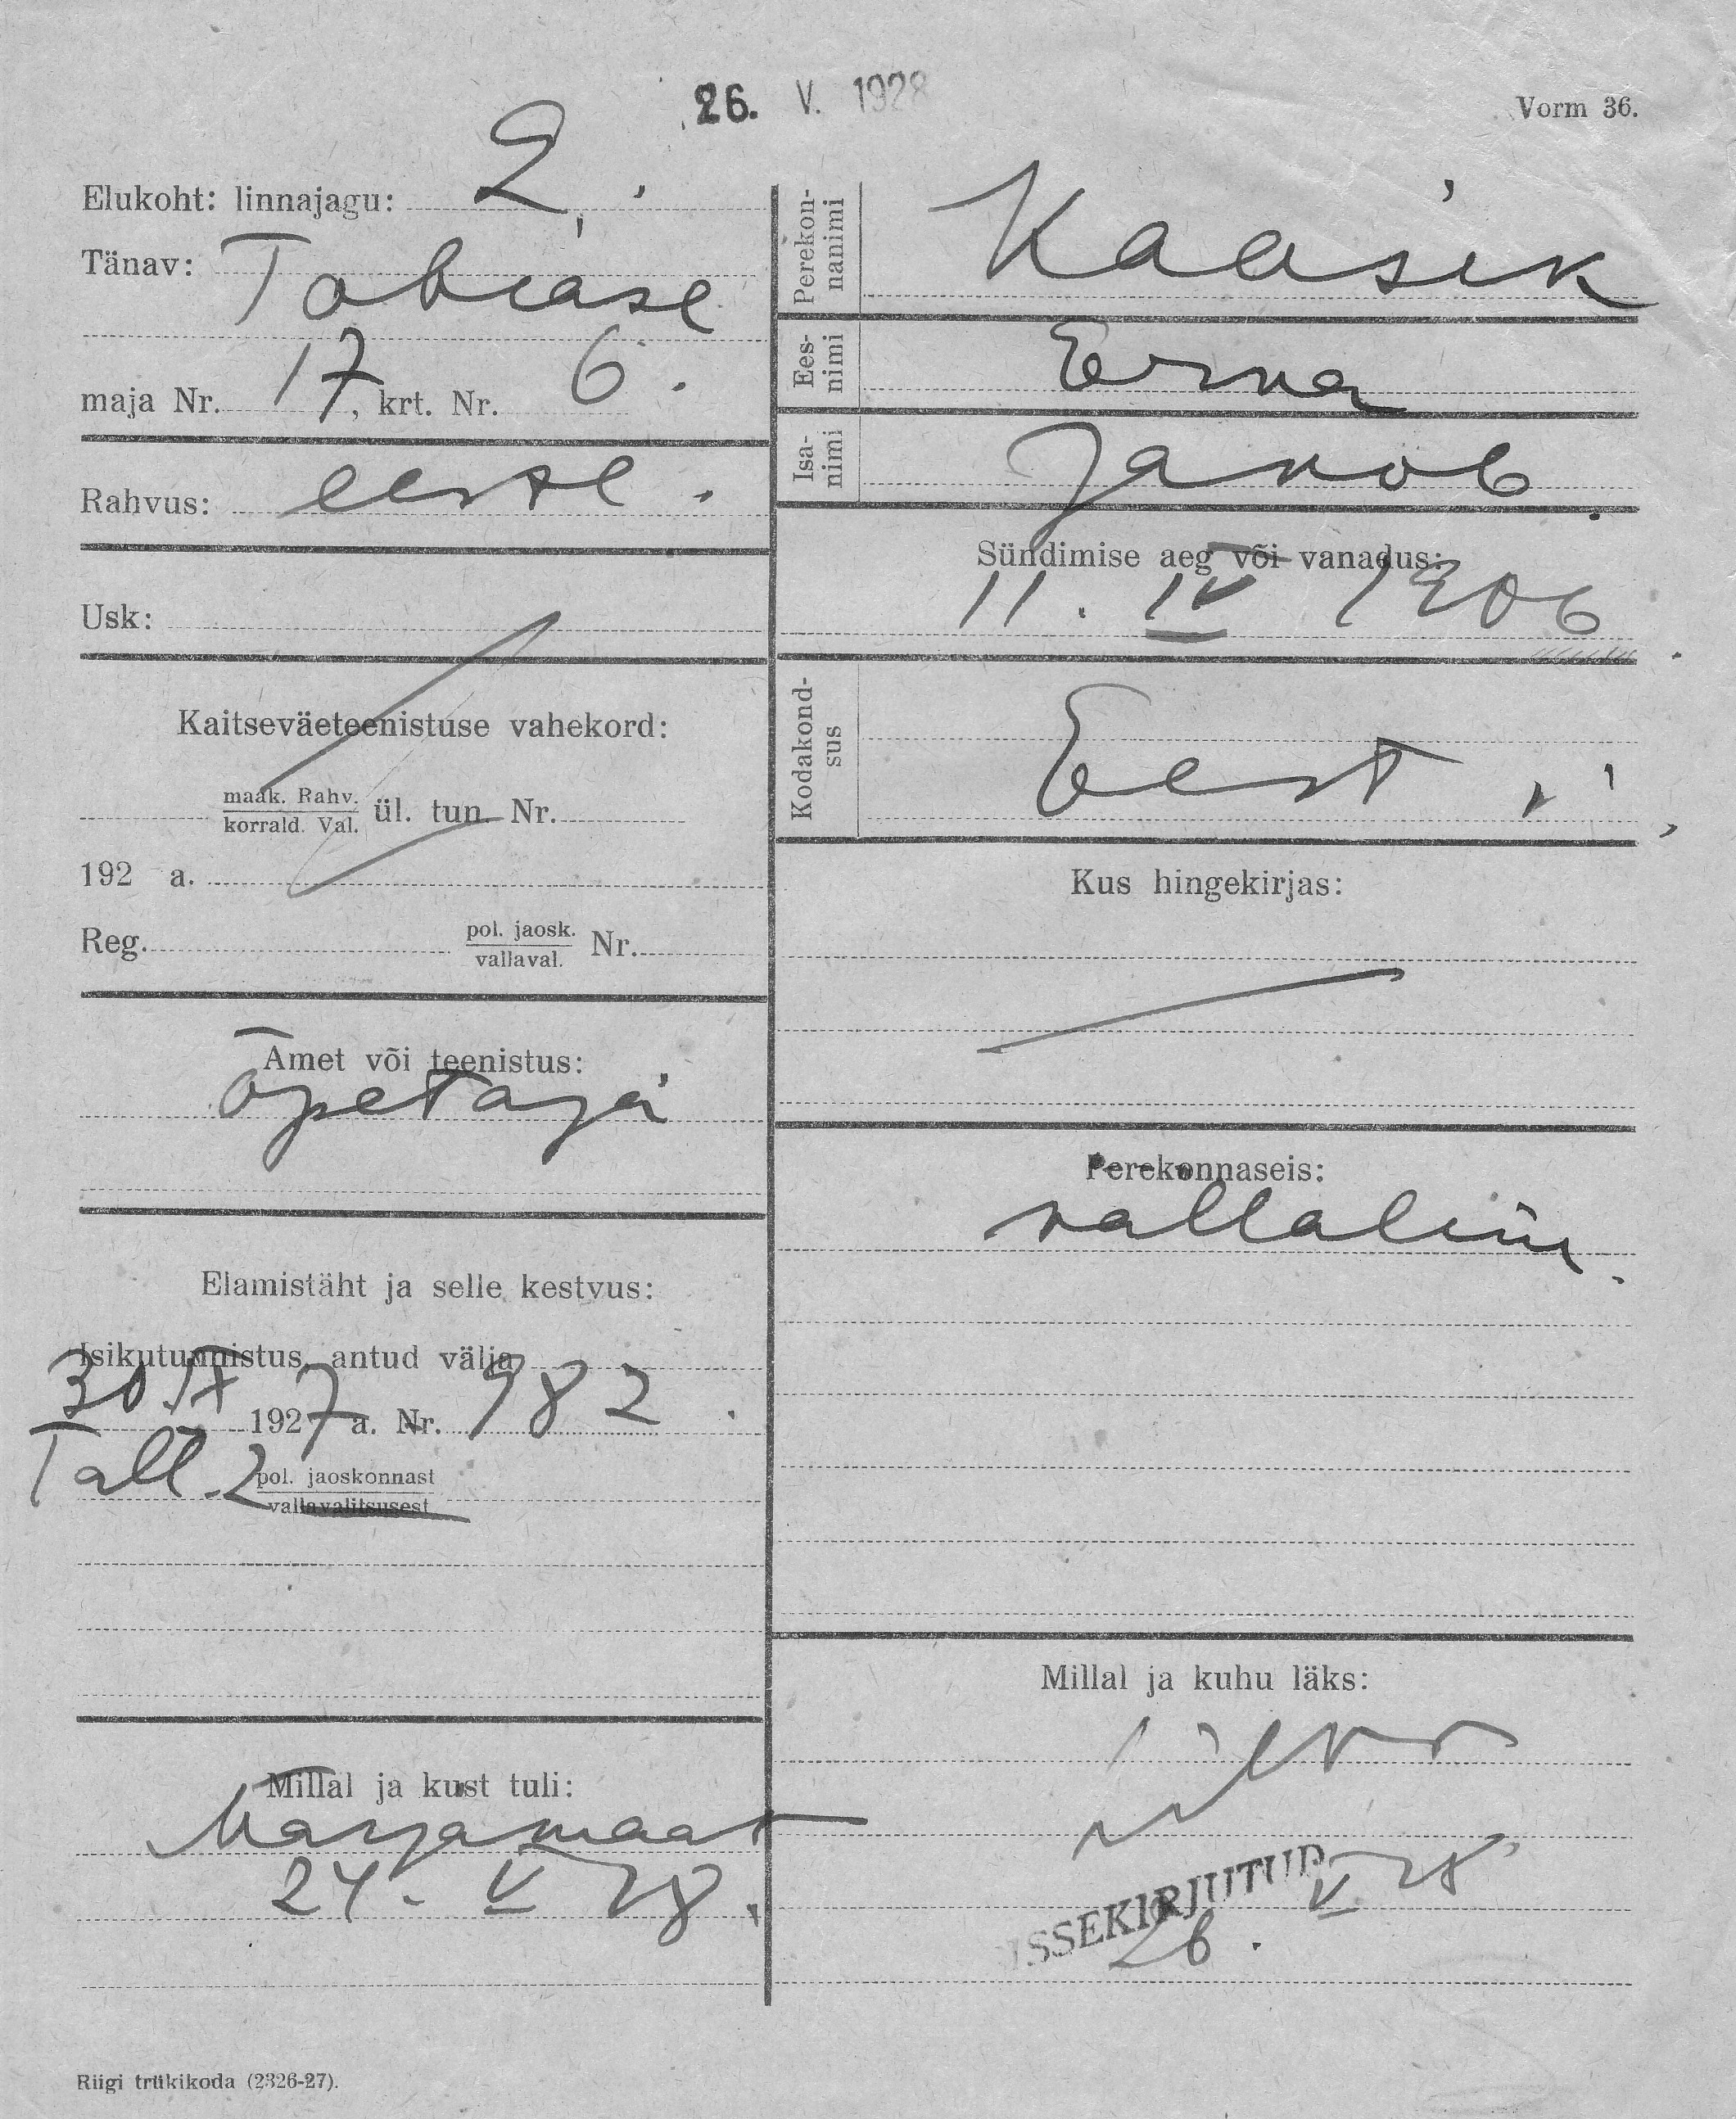 26. V. 1928
Vorm 36.
Elukoht: linnajagu: 2.
Tänav: Tobiase
maja Nr. 17, krt. Nr. 6.
Rahvus: eesti.
Usk:
Kaitseväeteenistuse vahekord:
maak. Rahv.
korrald. Val. ül. tun. Nr.
192 a.
Reg. pol. jaosk.
vallaval. Nr.
Amet või teenistus:
Õpetaja
Elamistäht ja selle kestvus:
Isikutunnistus, antud välja
30.IX 1927 a. Nr. 982.
Tall. 2 pol. jaoskonnast
vallavalitsusest
Millal ja kust tuli:
Marjamaat
24. V 28.
Perekon-
nanimi
Kaasik
Ees-
nimi
Erna
Isa-
nimi
Jakob.
Sündimise aeg või vanadus:
11. IV 1906.
Kodakond-
sus
Eest.
Kus hingekirjas:
Perekonnaseis:
vallaline.
Millal ja kuhu läks:
SISSEKIRJUTUD
26. V 28
Riigi trükikoda (2326-27).